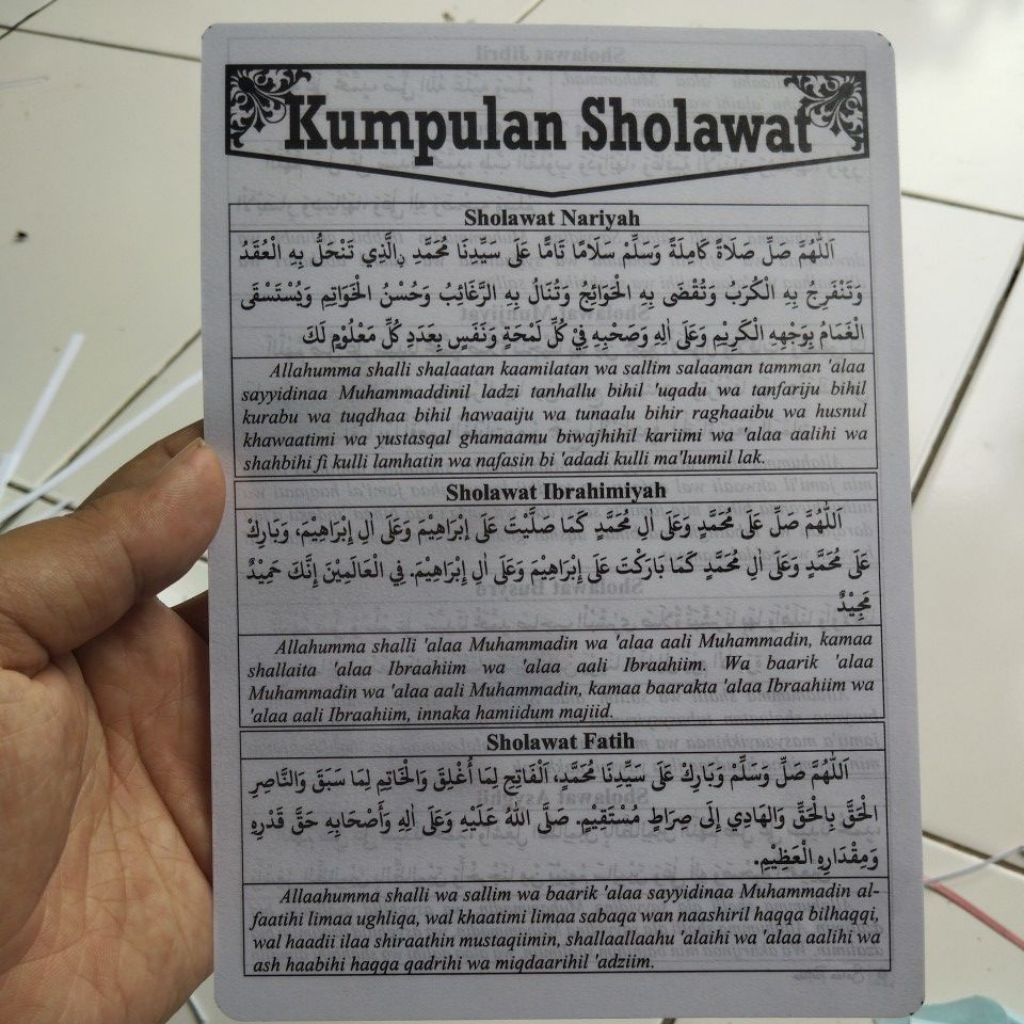 Kumpulan Sholawat
Sholawat Nariyah
اَللّٰهُمَّ صَلِّ صَلَاةً كَامِلَةً وَسَلِّمْ سَلَامًا تَامًّا عَلَى سَيِّدِنَا مُحَمَّدِ ࣙالَّذِي تَنْحَلُّ بِهِ الْعُقَدُ
وَتَنْفَرِجُ بِهِ الْكُرَبُ وَتُقْضَى بِهِ الْحَوَائِجُ وَتُنَالُ بِهِ الرَّغَائِبُ وَحُسْنُ الْخَوَاتِمِ وَيُسْتَسْقَى
الْغَمَامُ بِوَجْهِهِ الْكَرِيْمِ وَعَلَى اٰلِهِ وَصَحْبِهِ فِيْ كُلِّ لَمْحَةٍ وَنَفَسٍ بِعَدَدِ كُلِّ مَعْلُوْمٍ لَكَ
Allahumma shalli shalaatan kaamilatan wa sallim salaaman tamman 'alaa
sayyidinaa Muhammaddinil ladzi tanhallu bihil 'uqadu wa tanfariju bihil
kurabu wa tuqdhaa bihil hawaaiju wa tunaalu bihir raghaaibu wa husnul
khawaatimi wa yustasqal ghamaamu biwajhihil kariimi wa 'alaa aalihi wa
shahbihi fi kulli lamhatin wa nafasin bi 'adadi kulli ma'luumil lak.
Sholawat Ibrahimiyah
اَللّٰهُمَّ صَلِّ عَلَى مُحَمَّدٍ وَعَلَى اٰلِ مُحَمَّدٍ كَمَا صَلَّيْتَ عَلَى إِبْرَاهِيْمَ وَعَلَى اٰلِ إِبْرَاهِيْمَ، وَبَارِكْ
عَلَى مُحَمَّدٍ وَعَلَى اٰلِ مُحَمَّدٍ كَمَا بَارَكْتَ عَلَى إِبْرَاهِيْمَ وَعَلَى اٰلِ إِبْرَاهِيْمَ. فِي الْعَالَمِيْنَ إِنَّكَ حَمِيْدٌ
مَجِيْدٌ
Allahumma shalli 'alaa Muhammadin wa 'alaa aali Muhammadin, kamaa
shallaita 'alaa Ibraahiim wa 'alaa aali Ibraahiim. Wa baarik 'alaa
Muhammadin wa 'alaa aali Muhammadin, kamaa baarakta 'alaa Ibraahiim wa
'alaa aali Ibraahiim, innaka hamiidum majiid.
Sholawat Fatih
اَللّٰهُمَّ صَلِّ وَسَلِّمْ وَبَارِكْ عَلَى سَيِّدِنَا مُحَمَّدٍ، اَلْفَاتِحِ لِمَا أُغْلِقَ وَالْخَاتِمِ لِمَا سَبَقَ وَالنَّاصِرِ
الْحَقَّ بِالْحَقِّ وَالْهَادِي إِلَى صِرَاطٍ مُسْتَقِيْمٍ. صَلَّى اللّٰهُ عَلَيْهِ وَعَلَى اٰلِهِ وَأَصْحَابِهِ حَقَّ قَدْرِهِ
وَمِقْدَارِهِ الْعَظِيْمِ.
Allaahumma shalli wa sallim wa baarik 'alaa sayyidinaa Muhammadin al-
faatihi limaa ughliqa, wal khaatimi limaa sabaqa wan naashiril haqqa bilhaqqi,
wal haadii ilaa shiraathin mustaqiimin, shallaallaahu 'alaihi wa 'alaa aalihi wa
ash haabihi haqqa qadrihi wa miqdaarihil 'adziim.